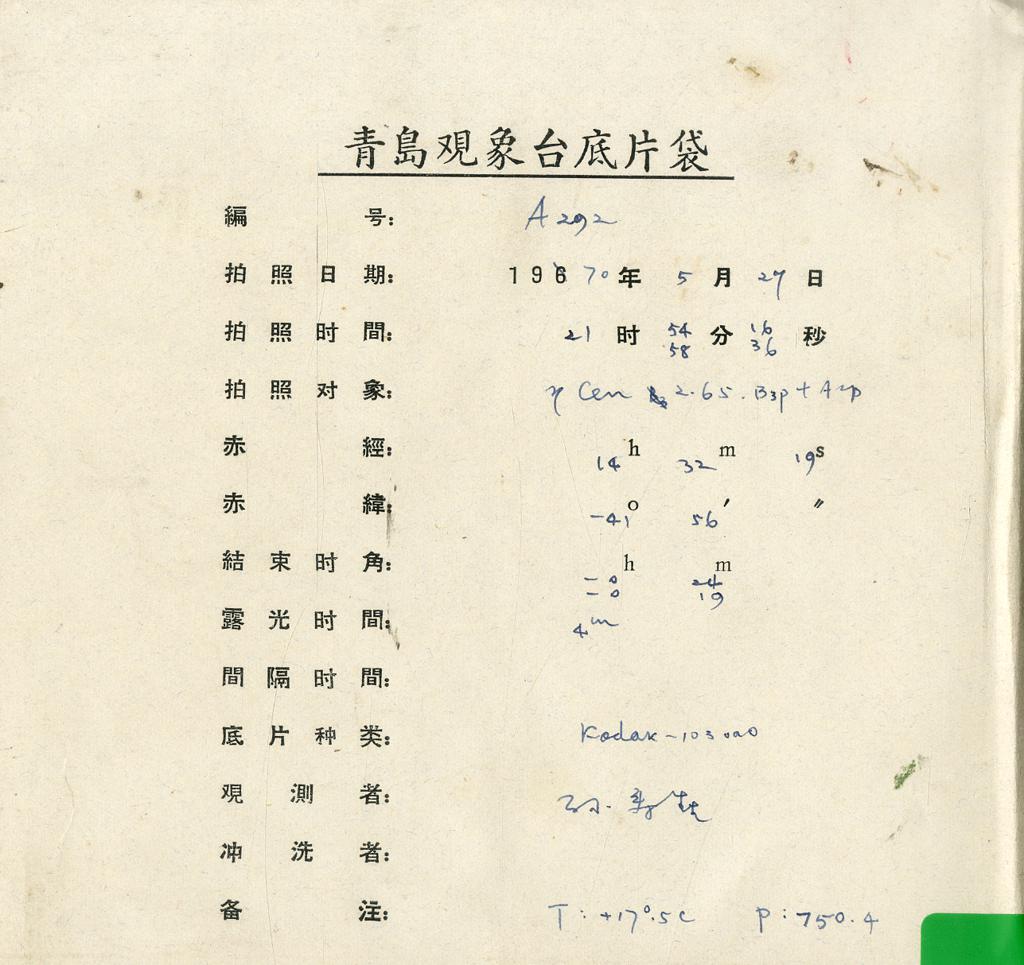 青島观象台底片袋
編号: A292
拍照日期: 196 70年 5月 27日
拍照时間: 21时 54分 16秒
58 36
拍照对象: η Cen 2.65. B3p + A2p
赤經: 14h 32m 19s
赤緯: -41° 56′ ″
結束时角: -0h 24m
-0 19
露光时間: 4m
間隔时間:
底片种类: Kodak-103aO
观測者: 孙寿
冲洗者:
备注: T: +17°.5C P: 750.4